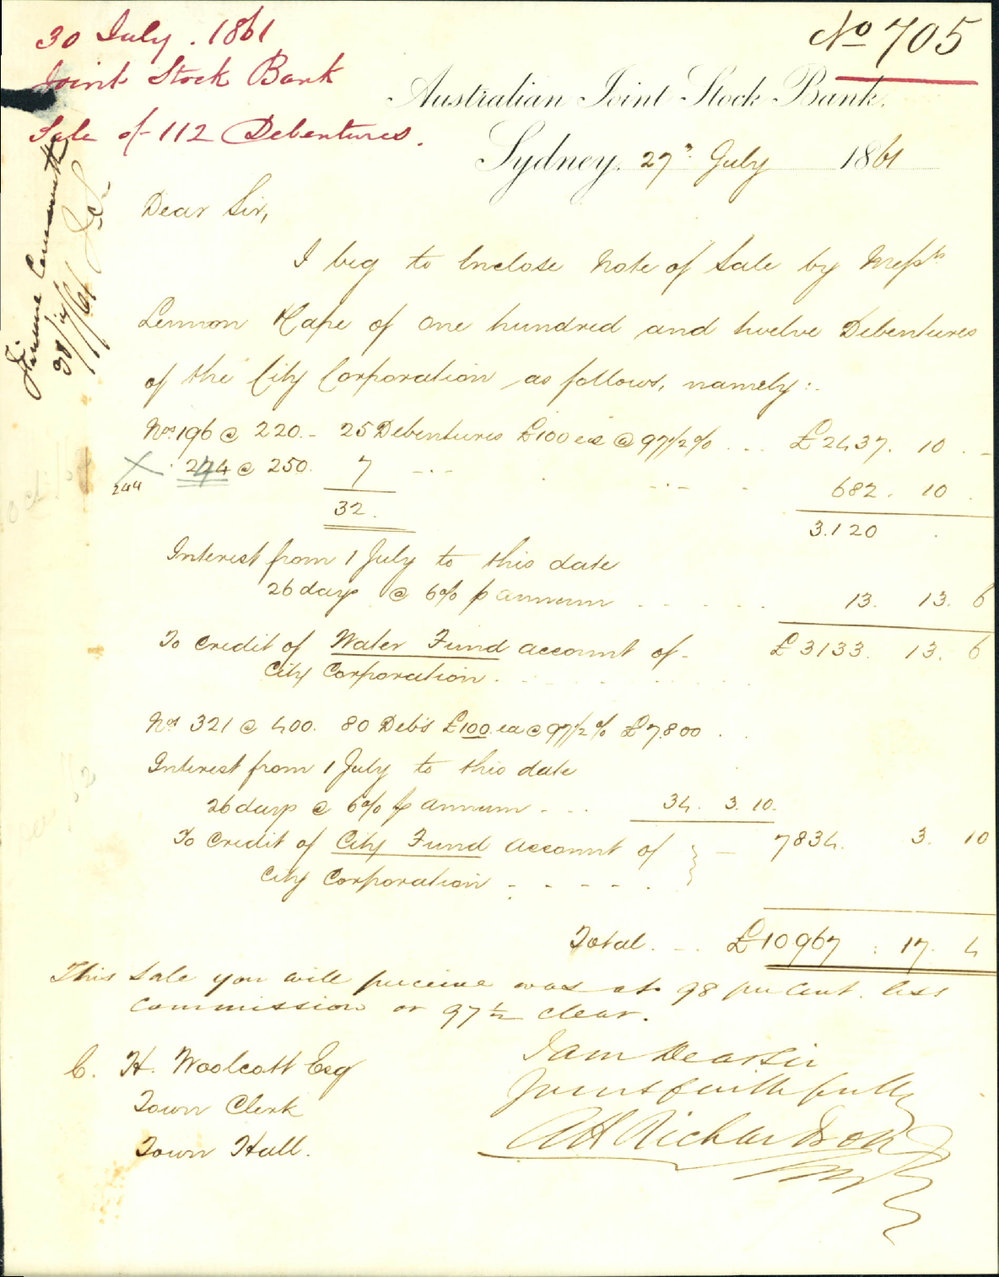 30 July. 1861
Joint Stock Bank
Sale of 112 Debentures.
No 705
Australian Joint Stock Bank.
Sydney, 27th July 1861
Finance Committee
30/7/61
Dear Sir,
I beg to enclose Note of Sale by Messrs
Lennon & Cape of One hundred and twelve Debentures
of the City Corporation as follows, namely:
Nos 196 @ 220. - 25 Debentures £100 ea @ 97 1/2 % ... £2437. 10. -
X 244 @ 250. 7 - - - 682. 10.
244
32. 3.120
Interest from 1 July to this date
26 days @ 6% p annum . . . . . 13. 13. 6
To Credit of Water Fund account of £3133. 13. 6
City Corporation.
Nos 321 @ 400. 80 Debs £100 ea @ 97 1/2 % £7.800 . .
Interest from 1 July to this date
26 days @ 6% p annum - . . . 34. 3. 10.
To Credit of City Fund account of } - 7834. 3. 10
City Corporation - - - - -
Total. - . £10967 : 17. 4
This Sale you will perceive was at 98 per Cent. less
Commission or 97 1/2 clear.
I am Dear Sir
Yours faithfully
AH Richardson
C. H. Woolcott Esq
Town Clerk
Town Hall.